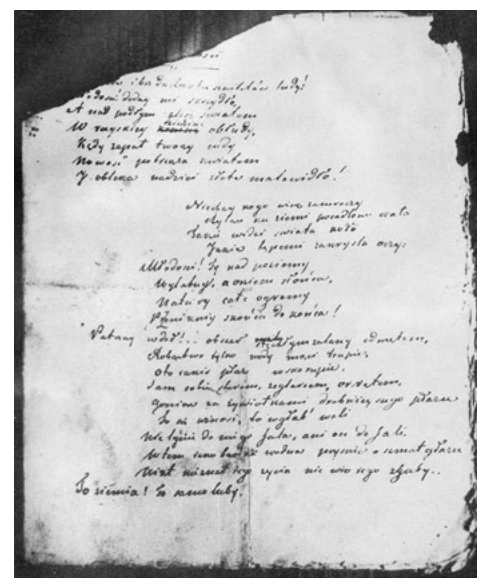 ludy!
Młodości! dodaj mi skrzydła,
A nad podłym światem
W rayskiey obłudy,
Kędy zapał tworzy cudy
Nowość potrząsa kwiatem
I obleka nadzieię złote malowidło!
Niechay kogo wiek zamroczy
Chyląc ku ziemi czoło
Takie widzi świata koło
Jakie tępemi zakryśla oczy:
Młodości! ty nad poziomy
Wylatuy, a okiem słońca,
Natury całe ogromy
Przeniknij z końca do końca!
Patrzay w dół!.. obszar zalany odmętem,
Robactwo tylko wody mąci trupie,
Oto iakiś płaz w skorupie,
Sam sobie sterem, żeglarzem, okrętem,
Goniąc za żywiołkami drobnieyszego płazu
To się wznosi, to wgłąb' wali
Nie lgnie do niego fala, ani on do fali.
Wtem, iako bańka wodna prysnie o szmat głazu
Nikt nieznał iego życia nie wie iego zguby..
To ziemia! to samoluby.